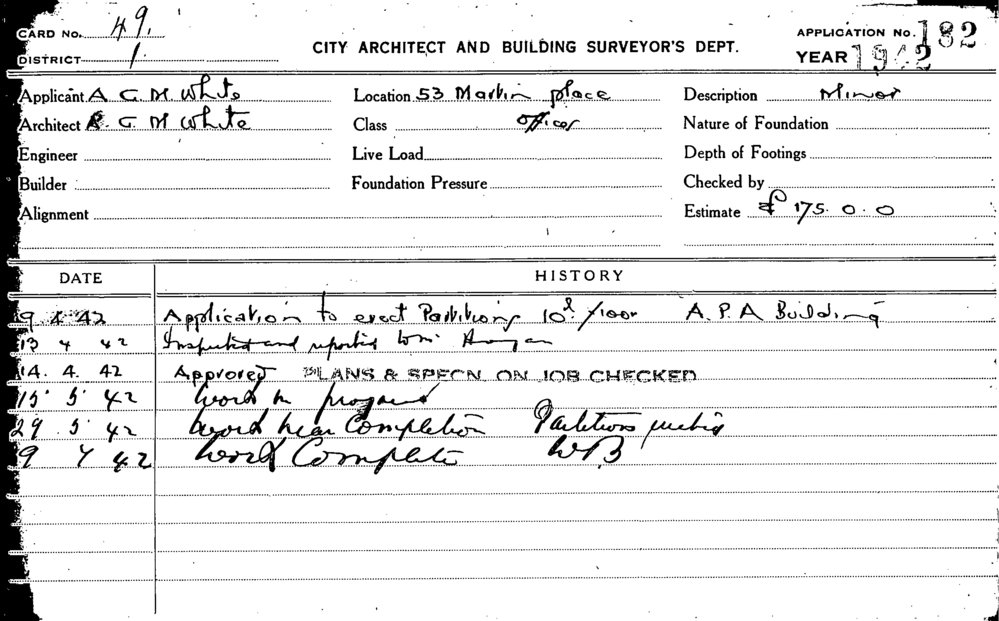 CARD No. 49.
DISTRICT 1.
CITY ARCHITECT AND BUILDING SURVEYOR'S DEPT.
APPLICATION No. 182
YEAR 1942
Applicant A G. M. White
Location 53 Martin place
Description Minor
Architect A. G. M White
Class offices
Nature of Foundation
Engineer
Live Load
Depth of Footings
Builder
Foundation Pressure
Checked by
Alignment
Estimate £ 175. 0. 0
DATE HISTORY
9 4 42 Application to erect Partitions 10th floor A. P. A Building
13 4 42 Inspected and reported to Mr
14. 4. 42 Approved PLANS & SPECN ON JOB CHECKED
15 5 42 Work in progress
29 5 42 Work near Completion Partitions
9 7 42 Work Complete WB